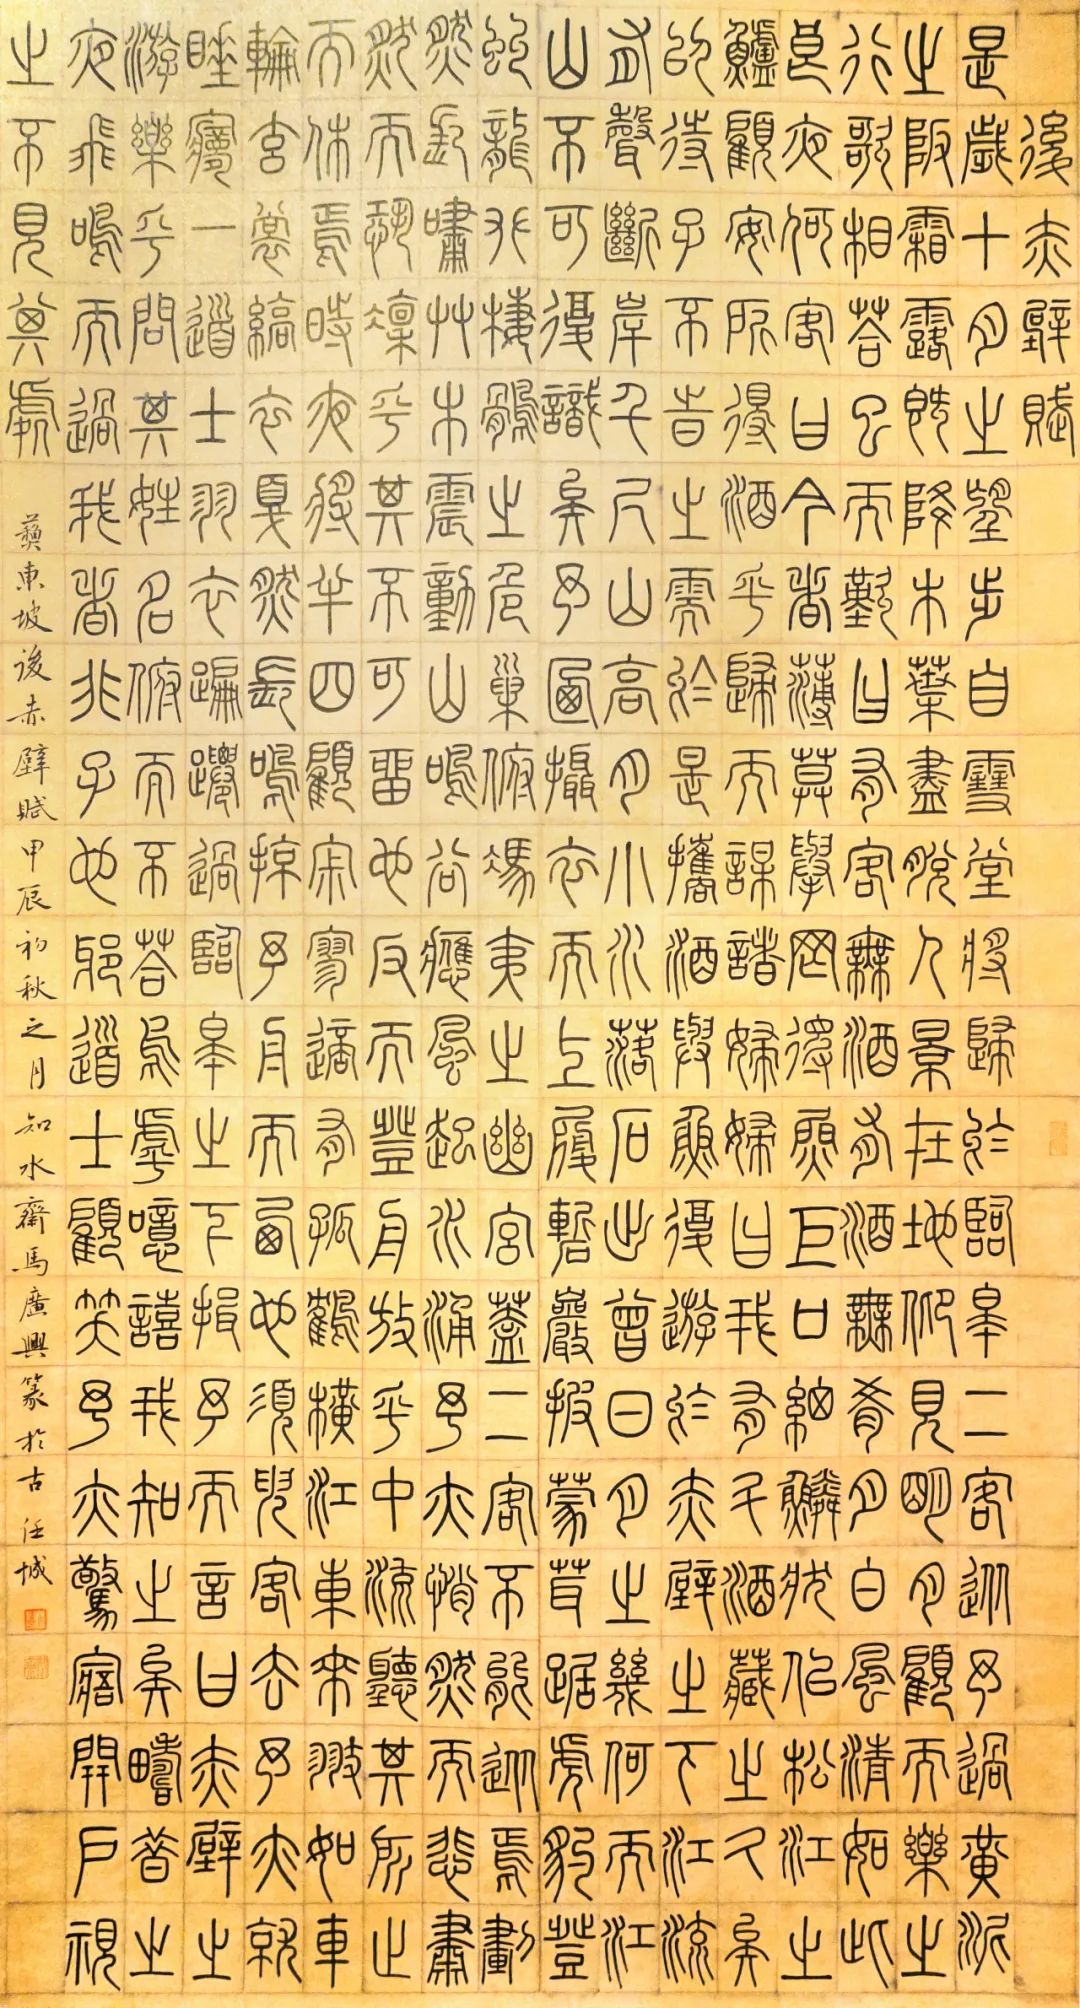 後赤壁賦
是歲十月之望步自雪堂將歸於臨皋二客從予過黃泥
之阪霜露既降木葉盡脫人景在地仰見明月顧而樂之
行歌相答已而歎曰有客無酒有酒無肴月白風清如此
良夜何客曰今者薄莫舉网得魚巨口細鱗狀似松江之
鱸顧安所得酒乎歸而謀諸婦婦曰我有斗酒藏之久矣
以待子不時之需於是攜酒與魚復遊於赤壁之下江流
有聲斷岸千尺山高月小水落石出曾日月之幾何而江
山不可復識矣予乃攝衣而上履巉巖披蒙茸踞虎豹登
虯龍攀棲鶻之危巢俯馮夷之幽宮蓋二客不能從焉劃
然長嘯艸木震動山鳴谷應風起水涌予亦悄然而悲肅
然而恐凜乎其不可留也反而登舟放乎中流聽其所止
而休焉時夜將半四顧寂寥適有孤鶴橫江東來翅如車
輪玄裳縞衣戛然長鳴掠予舟而西也須臾客去予亦就
睡夢一道士羽衣蹁躚過臨皋之下揖予而言曰赤壁之
遊樂乎問其姓名俯而不答烏虖噫譆我知之矣疇昔之
夜飛鳴而過我者非子也邪道士顧笑予亦驚寤開戶視
之不見其處
蘇東坡後赤壁賦甲辰初秋之月知水齋馬廣興篆於古任城